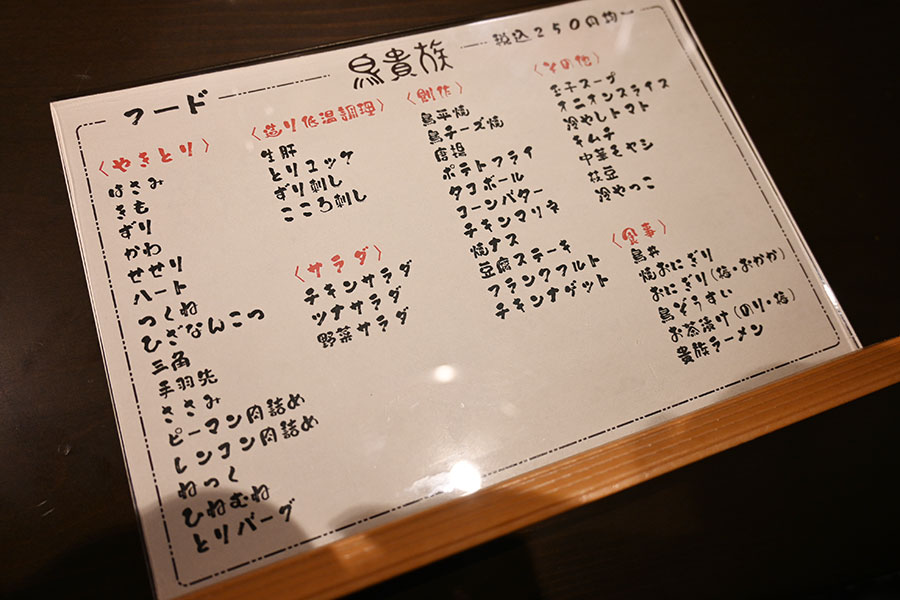 鳥貴族
税込250円均一
フード
〈やきとり〉
はさみ
きも
ずり
かわ
せせり
ハート
つくね
ひざなんこつ
三角
手羽先
ささみ
ピーマン肉詰め
レンコン肉詰め
ねっく
ひねむね
とりバーグ
〈造り低温調理〉
生肝
とりユッケ
ずり刺し
こころ刺し
〈サラダ〉
チキンサラダ
ツナサラダ
野菜サラダ
〈創作〉
鳥平焼
鳥チーズ焼
唐揚
ポテトフライ
タコボール
コーンバター
チキンマリネ
焼ナス
豆腐ステーキ
フランクフルト
チキンナゲット
〈その他〉
玉子スープ
オニオンスライス
冷やしトマト
キムチ
中華モヤシ
枝豆
冷やっこ
〈食事〉
鳥丼
焼おにぎり
おにぎり(梅・おかか)
鳥ぞうすい
お茶漬け(のり・梅)
貴族ラーメン